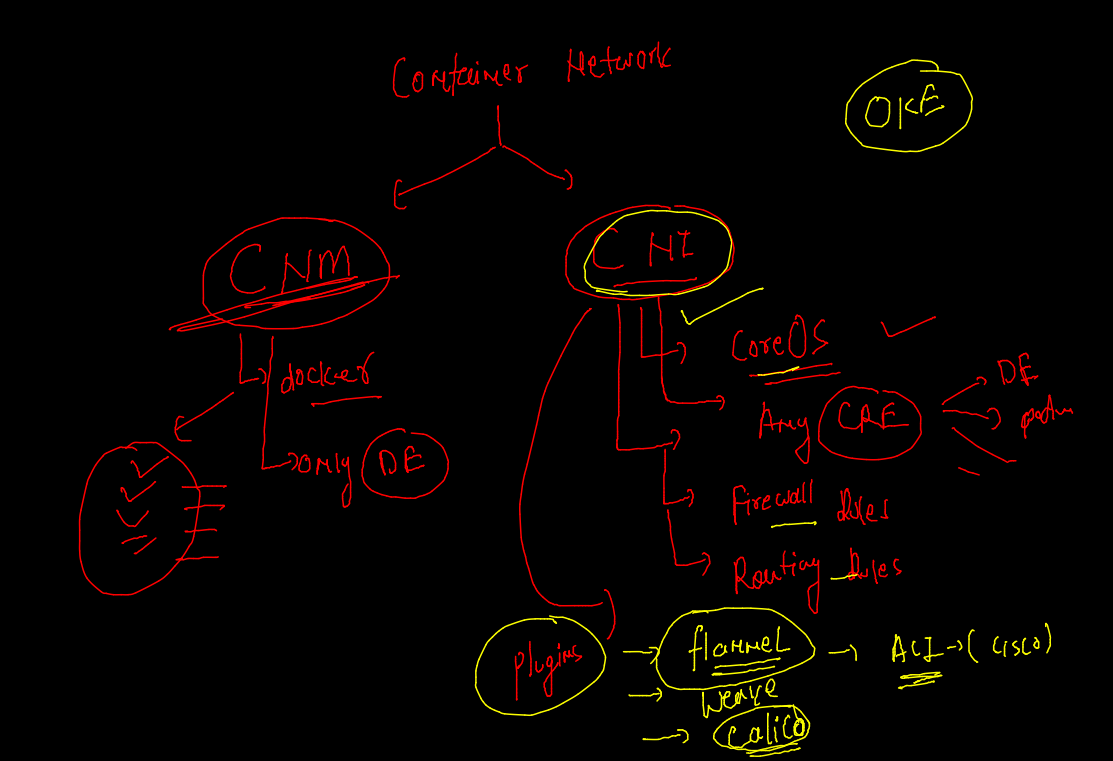 Container Network
OKE
CNM
CNI
docker
only DE
CoreOS
Any CRE
DE
Firewall Rules
Routing Rules
plugins
flannel
ACI
(CISCO)
Weave
calico